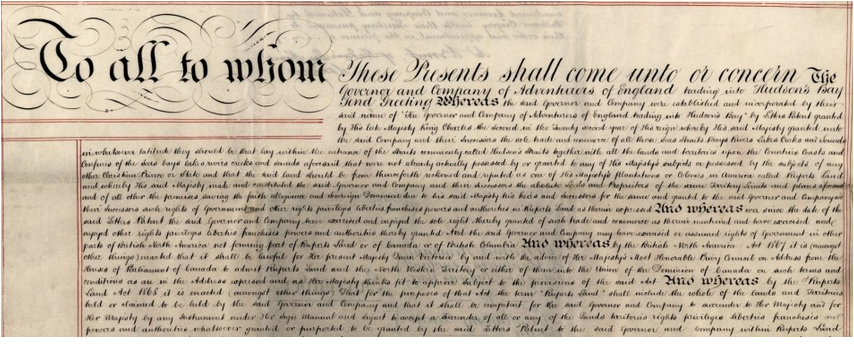 To all to whom These Presents shall come unto or concern The
Governor and Company of Adventurers of England trading into Hudson's Bay
Send Greeting Whereas the said Governor and Company were established and incorporated by their
said name of "The Governor and Company of Adventurers of England trading into Hudson's Bay" by Letters Patent granted
by His late Majesty King Charles the Second in the Twenty second year of His reign whereby His said Majesty granted unto
the said Company and their Successors the sole trade and commerce of all those Seas Straits Bays Rivers Lakes Creeks and Sounds
in whatsoever latitude they should be that lay within the entrance of the Straits commonly called Hudson's Straits together with all the lands and territories upon the Countries Coasts and
Confines of the seas bays lakes rivers creeks and sounds aforesaid that were not already actually possessed by or granted to any of His Majesty's subjects or possessed by the subjects of any
other Christian Prince or State and that the said land should be from thenceforth reckoned and reputed as one of His Majesty's Plantations or Colonies in America called Rupert's Land
and whereby His said Majesty made and constituted the said Governor and Company and their successors the absolute Lords and Proprietors of the same Territory Limits and places aforesaid
and of all other the premises saving the faith allegiance and sovereign Dominion due to his said Majesty his heirs and successors for the same and granted to the said Governor and Company and
their successors such rights of Government and other rights privileges liberties franchises powers and authorities in Rupert's Land as therein expressed And whereas ever since the date of the
said Letters Patent the said Governor and Company have exercised and enjoyed the sole right thereby granted of such trade and commerce as therein mentioned and have exercised and
enjoyed other rights privileges liberties franchises powers and authorities thereby granted And the said Governor and Company may have exercised or assumed rights of Government in other
parts of British North America not forming part of Rupert's Land or of Canada or of British Columbia And whereas by the British North America Act 1867 it is (amongst
other things) enacted that it shall be lawful for Her present Majesty Queen Victoria by and with the advice of Her Majesty's Most Honorable Privy Council on Address from the
Houses of Parliament of Canada to admit Rupert's Land and the North Western Territory or either of them into the Union of the Dominion of Canada on such terms and
conditions as are in the Address expressed and as Her Majesty thinks fit to approve subject to the provisions of the said Act And whereas by the "Rupert's
Land Act 1868" it is enacted (amongst other things) That for the purposes of that Act the term "Rupert's Land" shall include the whole of the lands and Territories
held or claimed to be held by the said Governor and Company and that it shall be competent for the said Governor and Company to surrender to Her Majesty and for
Her Majesty by any Instrument under Her Sign Manual and Signet to accept a surrender of all or any of the lands territories rights privileges liberties franchises and
powers and authorities whatsoever granted or purported to be granted by the said Letters Patent to the said Governor and Company within Rupert's Land